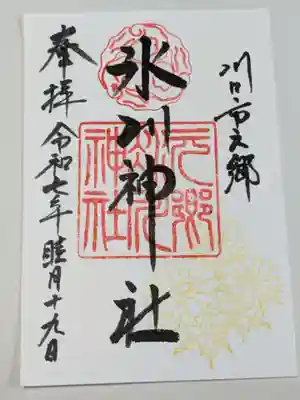 川口市元郷
氷川神社
元郷
氷川
神社
奉拝 令和七年 睦月十九日